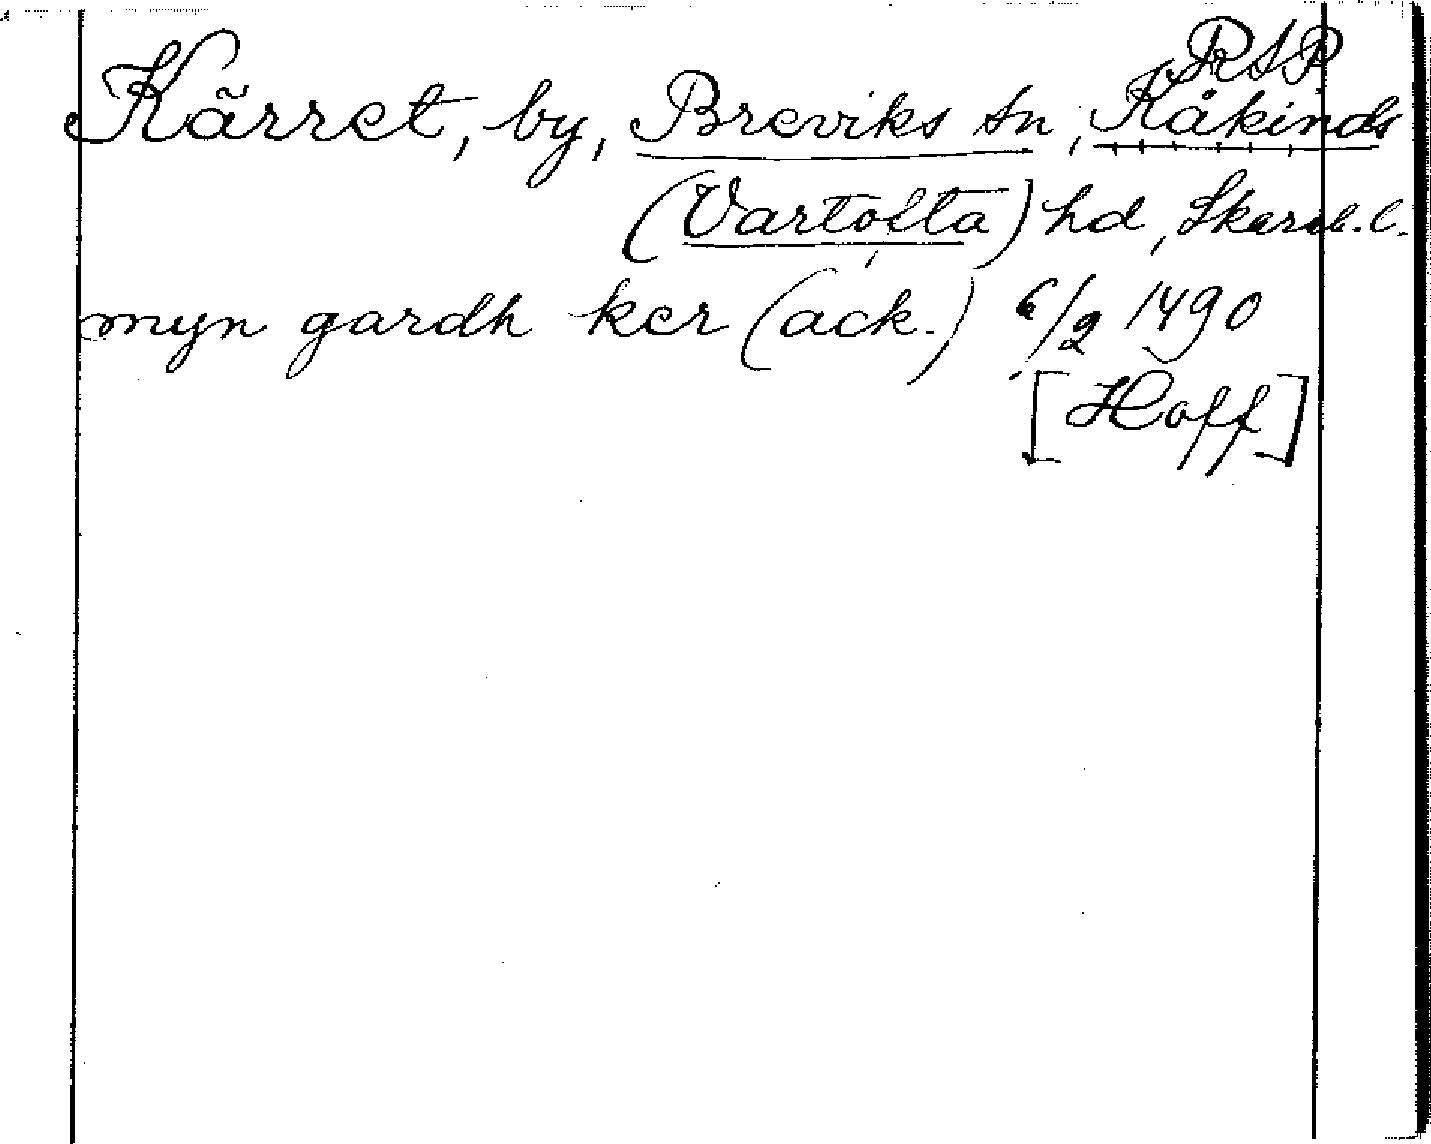 RAP
Kärret, by, Breviks sn, Kåkinds
(Vartofta) hd, Skarab. l.
myn gardh ker (ack.) 6/2 1490
[Hoff]